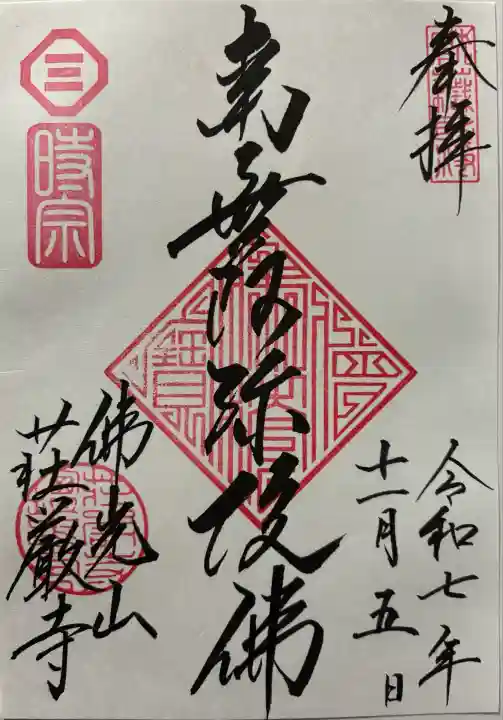 奉拝
令和七年
十一月五日
南無阿弥陀佛
三
時宗
佛光山
荘厳寺